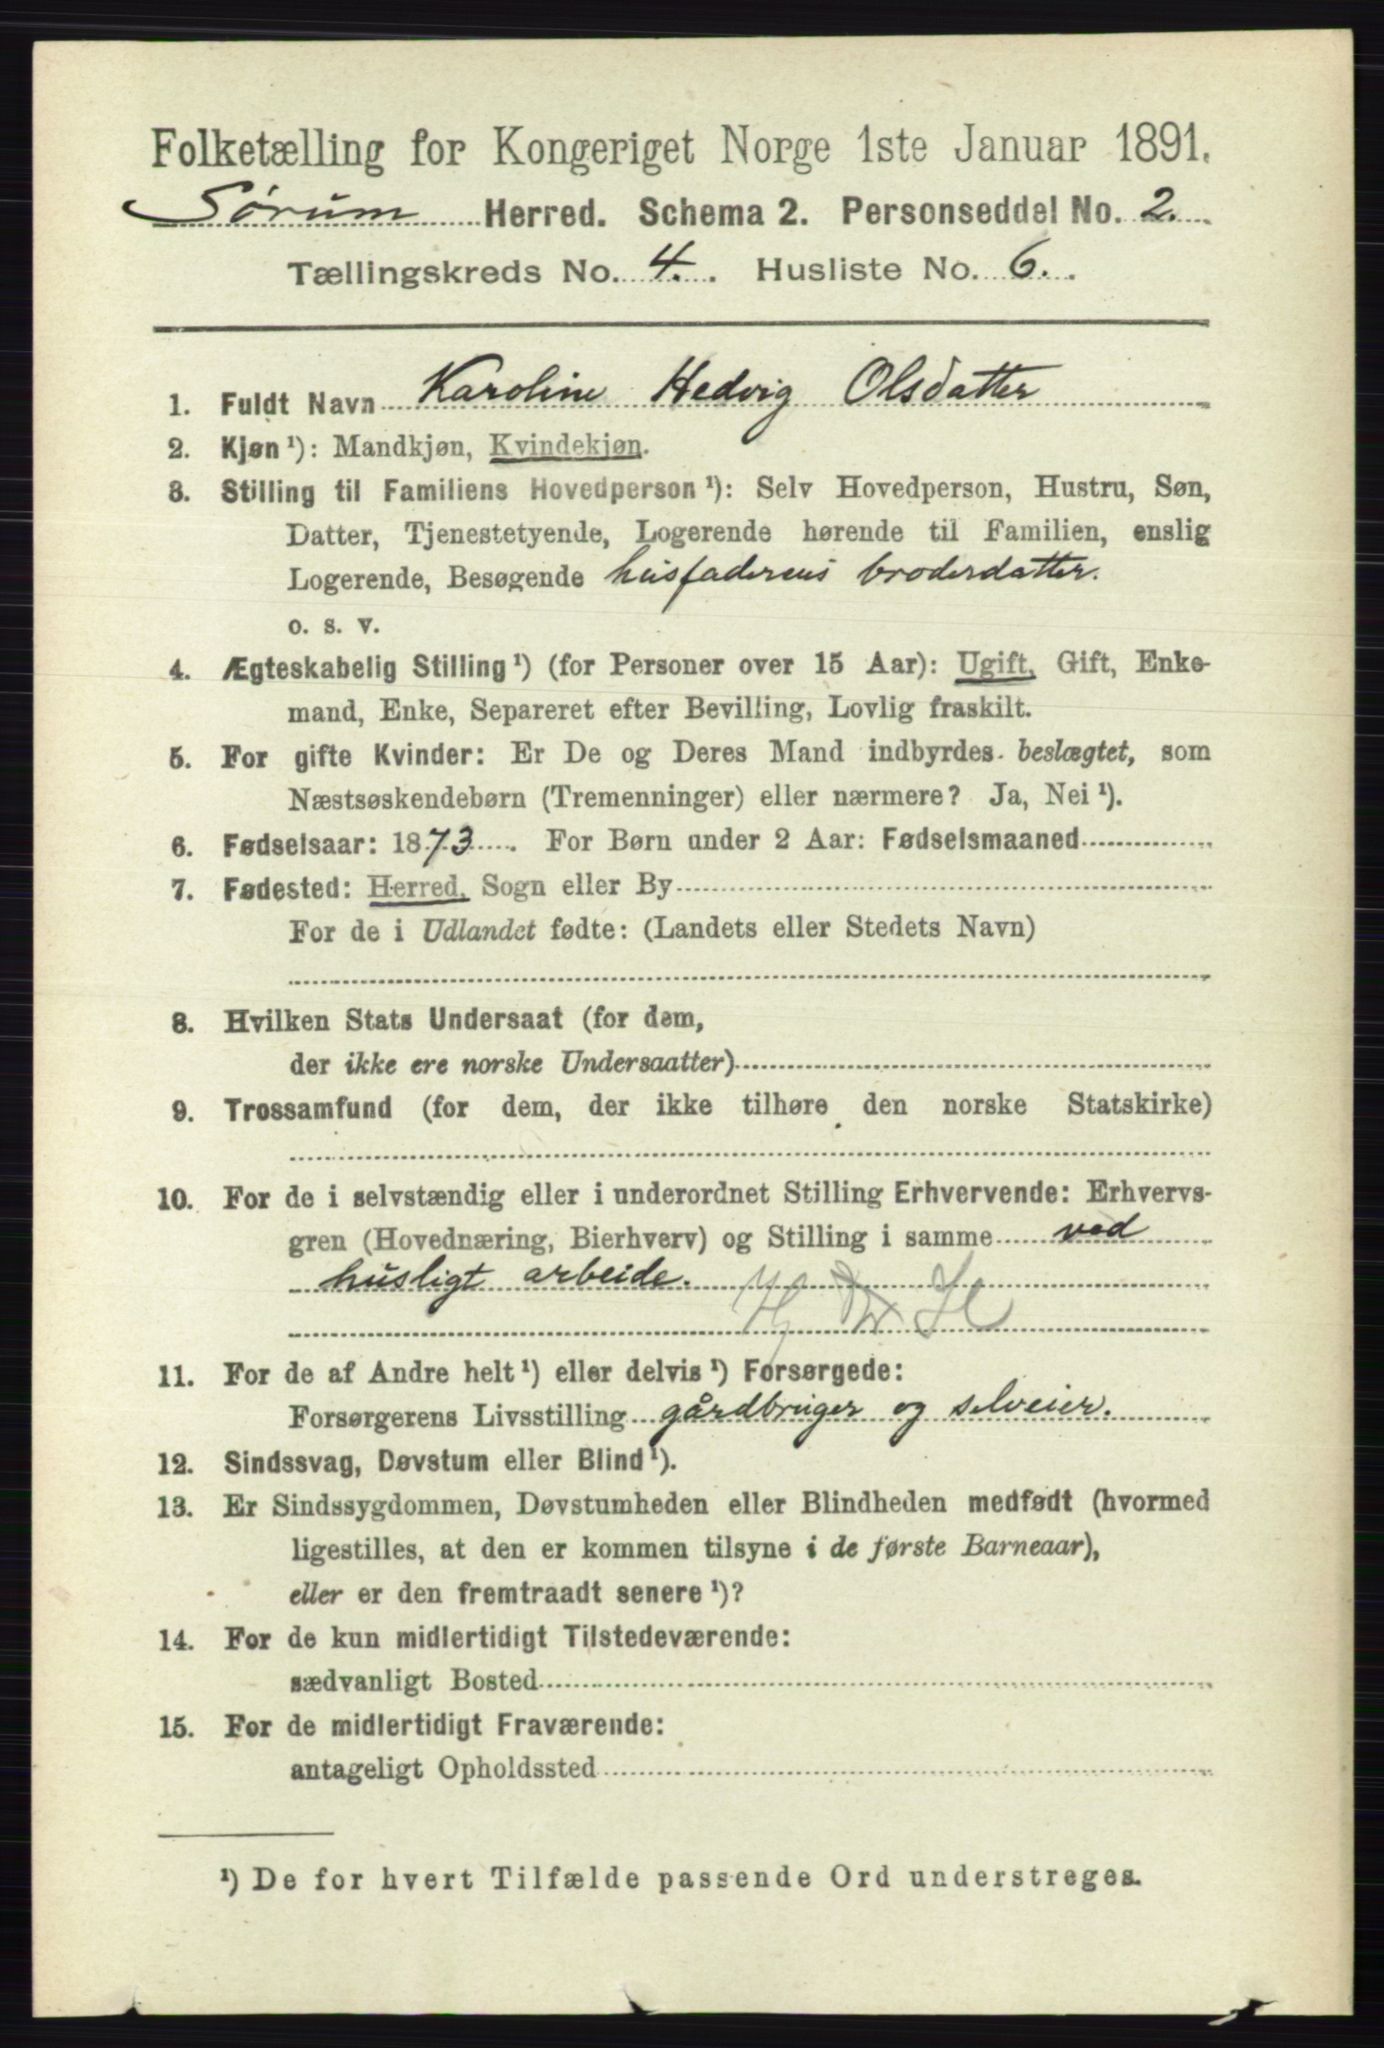 Folketælling for Kongeriget Norge 1ste Januar 1891.
Sørum Herred. Schema 2. Personseddel No. 2.
Tællingskreds No. 4. Husliste No. 6.
1. Fuldt Navn Karoline Hedvig Olsdatter
2. Kjøn ¹): Mandkjøn, Kvindekjøn.
3. Stilling til Familiens Hovedperson ¹): Selv Hovedperson, Hustru, Søn,
Datter, Tjenestetyende, Logerende hørende til Familien, enslig
Logerende, Besøgende husfaderens broderdatter.
o. s. v.
4. Ægteskabelig Stilling ¹) (for Personer over 15 Aar): Ugift, Gift, Enke-
mand, Enke, Separeret efter Bevilling, Lovlig fraskilt.
5. For gifte Kvinder: Er De og Deres Mand indbyrdes beslægtet, som
Næstsøskendebørn (Tremenninger) eller nærmere? Ja, Nei ¹).
6. Fødselsaar: 1873. For Børn under 2 Aar: Fødselsmaaned
7. Fødested: Herred, Sogn eller By
For de i Udlandet fødte: (Landets eller Stedets Navn)
8. Hvilken Stats Undersaat (for dem,
der ikke ere norske Undersaatter)
9. Trossamfund (for dem, der ikke tilhøre den norske Statskirke)
10. For de i selvstændig eller i underordnet Stilling Erhvervende: Erhvervs-
gren (Hovednæring, Bierhverv) og Stilling i samme ved
husligt arbeide.
11. For de af Andre helt ¹) eller delvis ¹) Forsørgede:
Forsørgerens Livsstilling gårdbruger og selveier.
12. Sindssvag, Døvstum eller Blind ¹).
13. Er Sindssygdommen, Døvstumheden eller Blindheden medfødt (hvormed
ligestilles, at den er kommen tilsyne i de første Barneaar),
eller er den fremtraadt senere ¹)?
14. For de kun midlertidigt Tilstedeværende:
sædvanligt Bosted
15. For de midlertidigt Fraværende:
antageligt Opholdssted
¹) De for hvert Tilfælde passende Ord understreges.